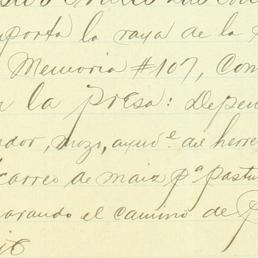 porta la raya de la
Memoria #107, Con
la presa: Depen
dor, mozo, ayud.e de herre
carreo de maiz p.a pastu
orando el camino de